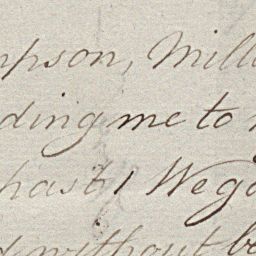 mpson, Mill
ding me to
hast, We go
without be